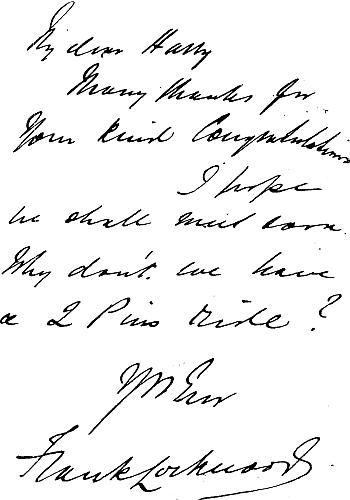 My dear Harry
Many thanks for
Your kind Congratulations
I hope
we shall meet soon.
Why don't we have
a 2 Pins ride?
Yrs Ever
Frank Lockwood